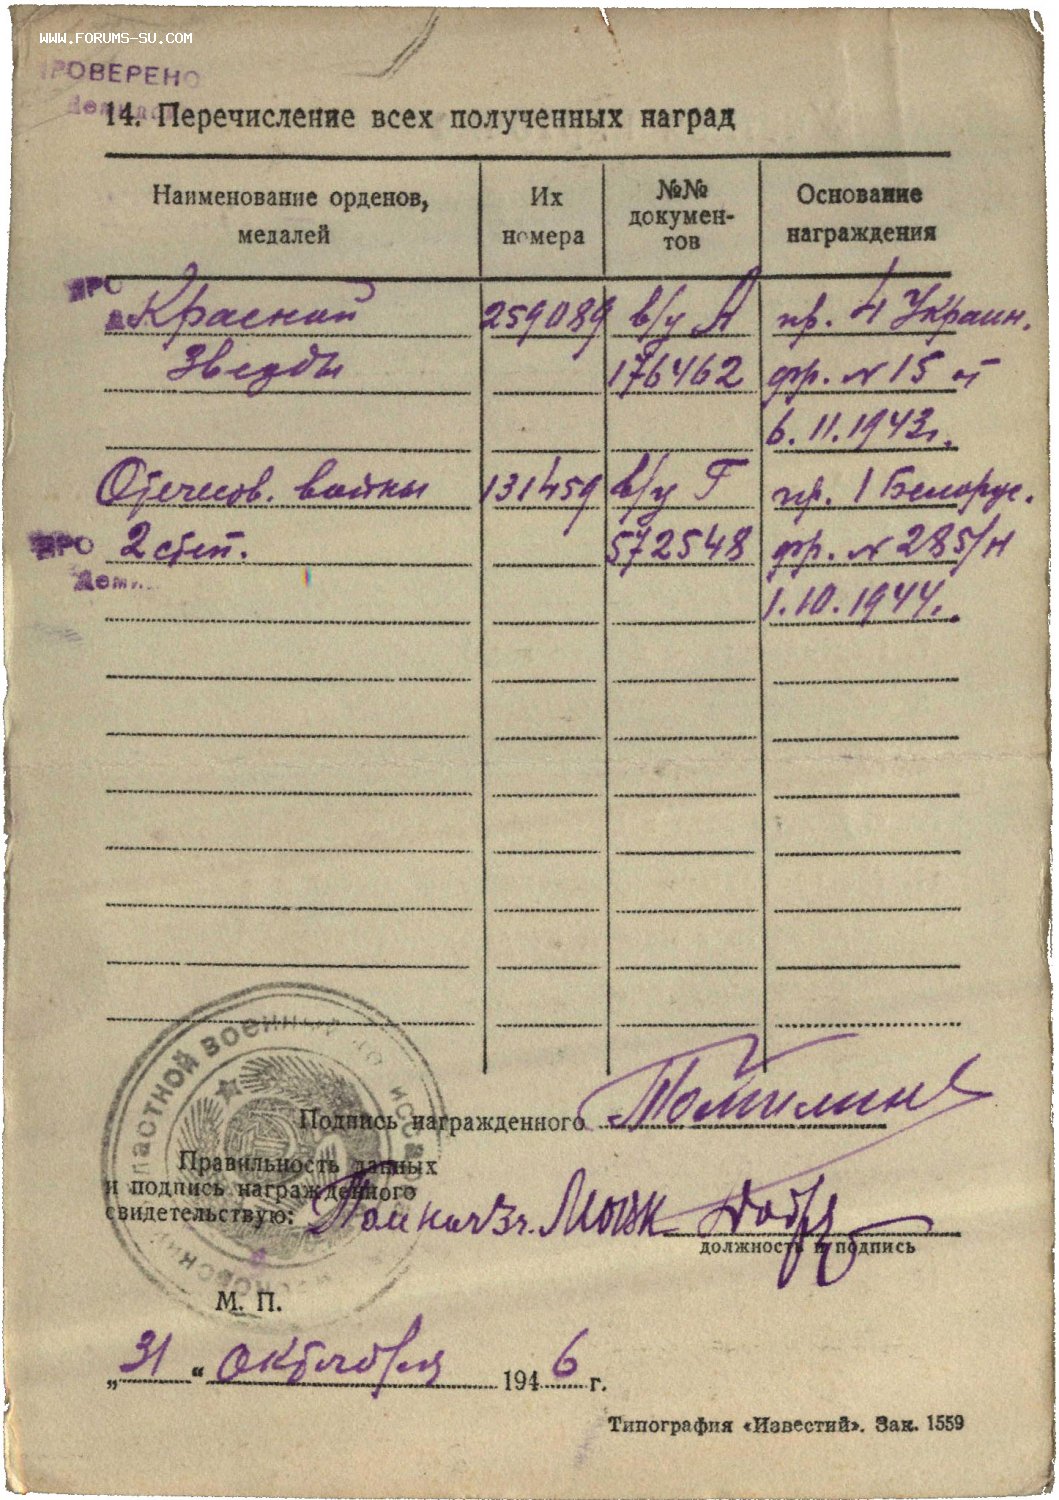 WWW.FORUMS-SU.COM
ПРОВЕРЕНО
14. Перечисление всех полученных наград
Наименование орденов, медалей
Их номера
№№ докумен-
тов
Основание награждения
ПРО
Красной 259089 в/у А пр. 4 Украин.
Звезды 176462 фр. № 15 от
6.11.1943г.
Отечесов. войны 131459 в/у Г пр. 1 Белорус.
ПРО 2 степ. 572548 фр. № 285/н
1.10.1944.
Подпись награжденного
Правильность данных
и подпись награжденного
свидетельствую:
должность и подпись
М. П.
„31“ октября 1946 г.
Типография «Известий». Зак. 1559